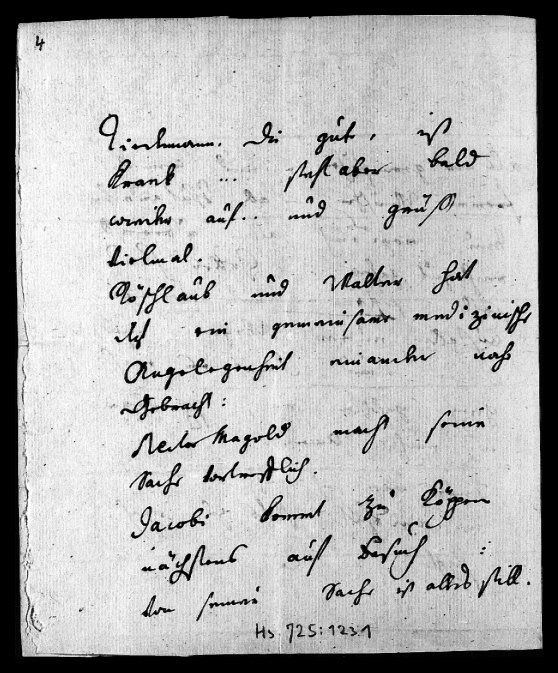 4
Tiedemann. Die gute, ist
Krank ... steht aber bald
wieder auf.. und grüßt
vielmal.
Röschlaub und Walter hat
die ein gemeinsame medizinische
Angelegenheit einander nah
Gebracht:
Rector Magold macht seine
Sache vortrefflich.
Jacobi kommt zu Köppen
nächstens auf Besuch:
von seiner Sache ist alles still.
Hs 725:1231